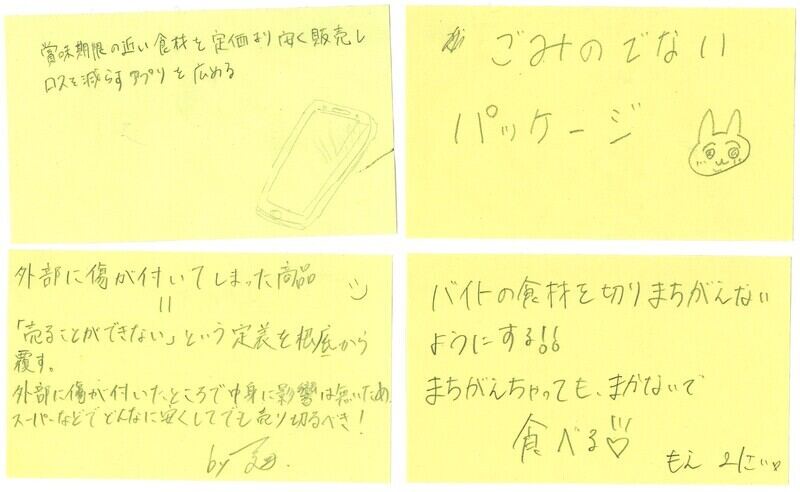 賞味期限の近い食材を定価より安く販売し
ロスを減らすアプリを広める
ごみのでない
パッケージ
外部に傷が付いてしまった商品
=
「売ることができない」という定義を根底から
覆す。
外部に傷が付いたところで中身に影響は無いため、
スーパーなどでどんなに安くしてでも売り切るべき!
by
バイトの食材を切りまちがえない
ようにする!!
まちがえちゃっても、まかないで
食べる♡
もえ